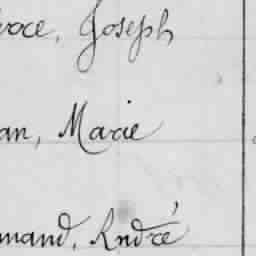 Joseph
an, Marie
mand, André